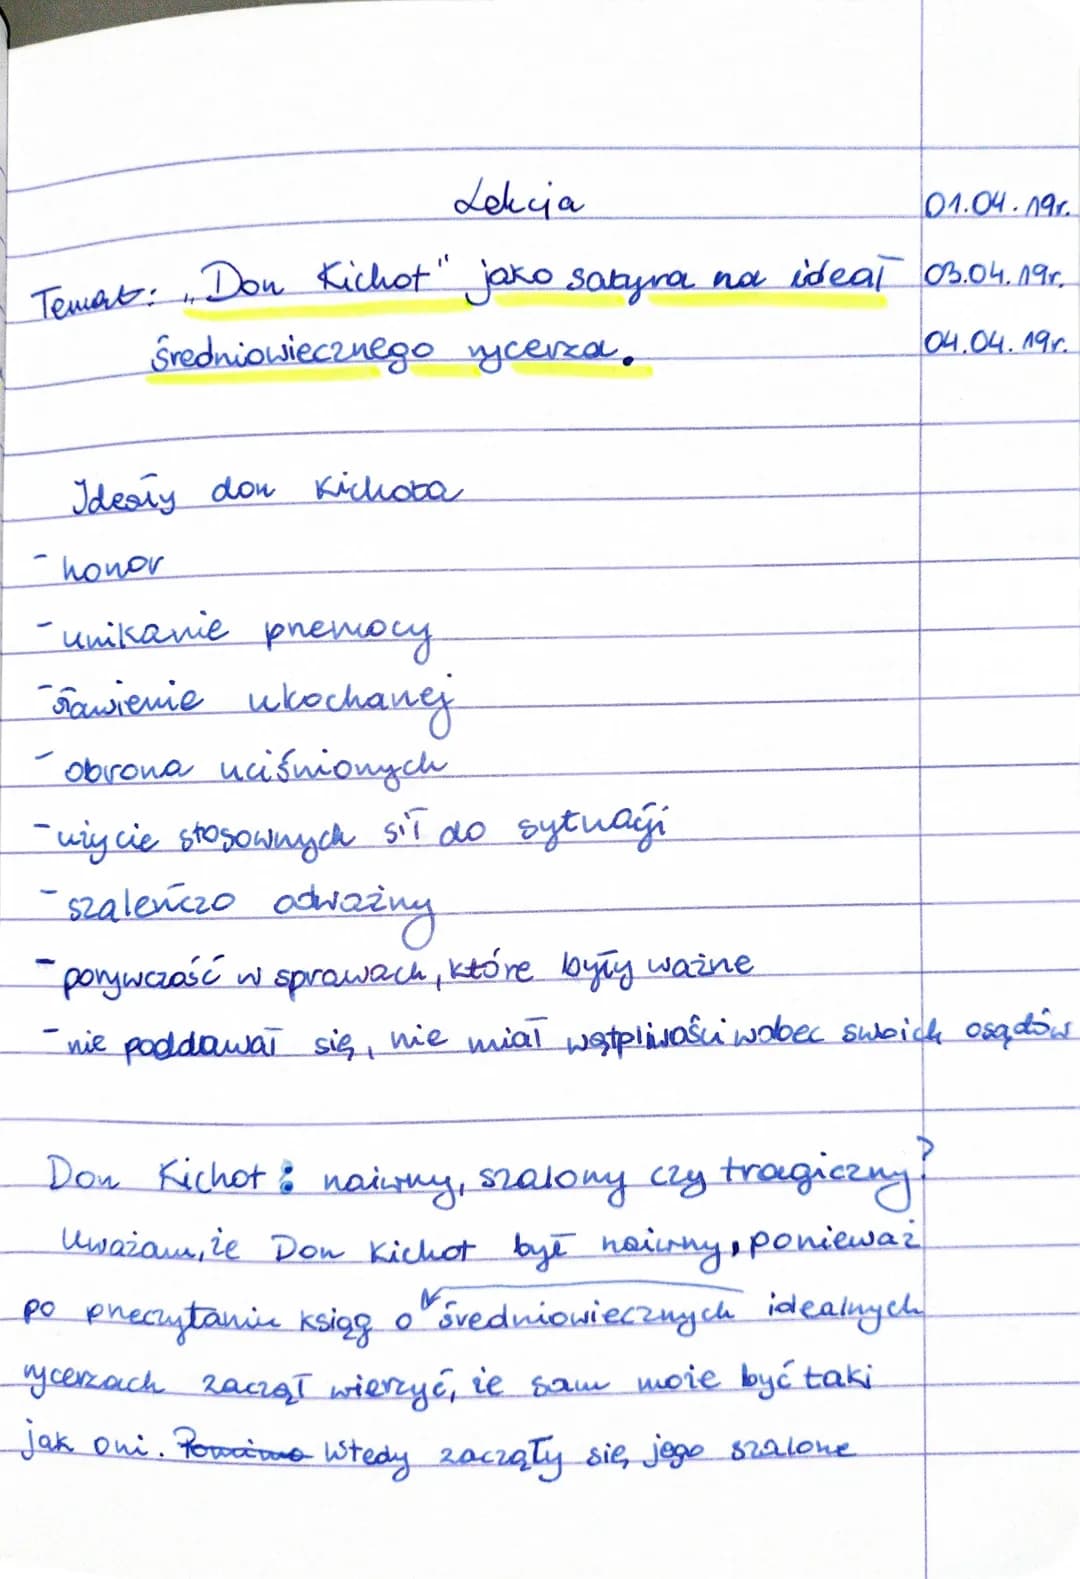 Lekcja 01.04.19r.
Temat: „Don Kichot" jako satyra na ideał 03.04.19r.
średniowiecznego rycerza. 04.04.19r.
Ideały don Kichota
- honor
- unikanie przemocy
- sławienie ukochanej
- obrona uciśnionych
- użycie stosownych sił do sytuacji
- szaleńczo odważny
- porywczość w sprawach, które były ważne
- nie poddawał się, nie miał wątpliwości wobec swoich osądów
Don Kichot: naiwny, szalony czy tragiczny?
Uważam, że Don Kichot był naiwny, ponieważ
po przeczytaniu ksiąg o średniowiecznych idealnych
rycerzach zaczął wierzyć, że sam może być taki
jak oni. Pomimo Wtedy zaczęły się jego szalone